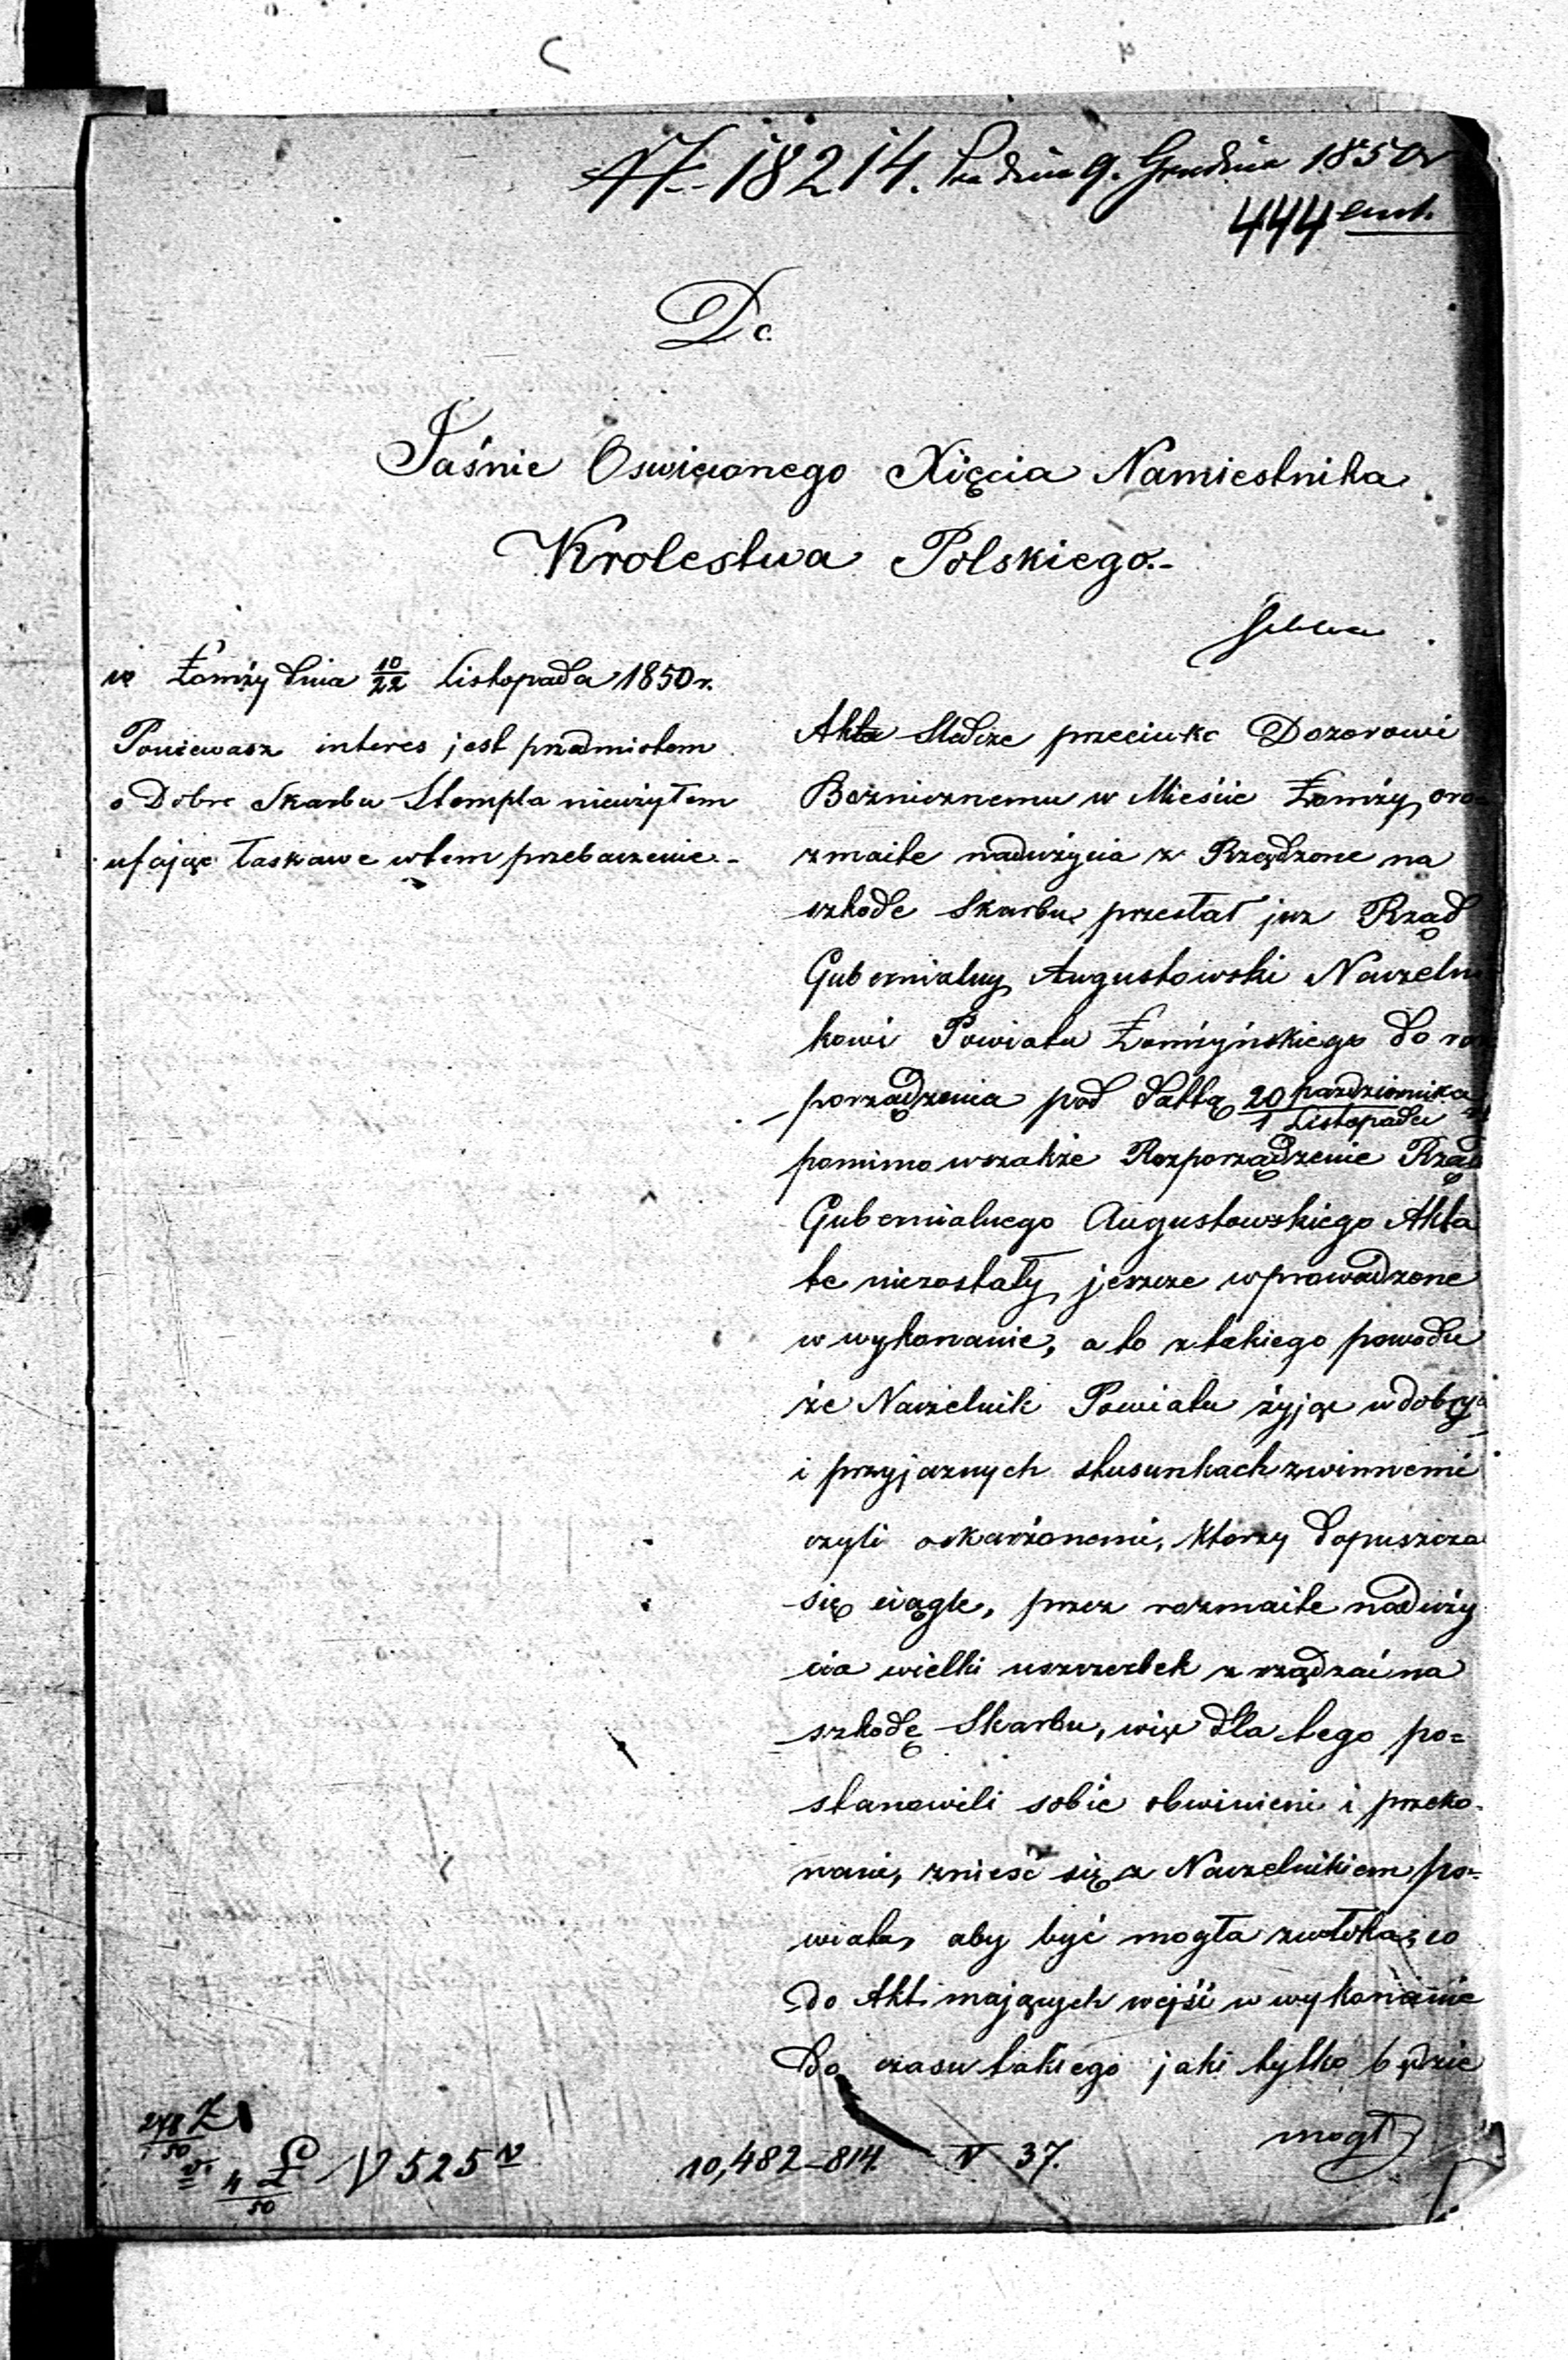 N 18214. dnia 9. Grudnia 1850 r
444
Do
Jaśnie Oswieconego Xięcia Namiestnika
Krolestwa Polskiego.-
w Łomży dnia 10/22 Listopada 1850 r.
Poniewasz interes jest przedmiotem
o Dobro Skarbu Stempla nieużytem
ufając łaskawe wtem przebaczenie.-
Akta Sledcze przeciwko Dozorowi
Bożnicznemu w Mieście Łomży, oro
zmaite nadużycia z Rządzone na
szkode Skarbu, przesłał juz Rząd
Gubernialny Augustowski Naczelni
kowi Powiatu Łomżyńskiego do roz
porządzenia pod dattą 20 pazdziernika/1 Listopada
pomimo wszakże Rozporządzenie Rząd
Gubernialnego Augustowskiego Akta
te niezostały jeszcze wprowadzone
w wykonanie, a to z takiego powodu
że Naczelnik Powiatu żyjąc w dobry
i przyjaznych stusunkach zwinnemi
czyli oskarżonemi, ktorzy dopuszcza
się ciągle, przez rozmaite naduży
cia wielki uszczerbek z rządzać na
szkodę Skarbu, więc dla tego po=
stanowili sobie obwinieni i przeko-
nani, znieść się z Naczelnikiem po=
wiatu, aby być mogła zwłoka, co
do Akt mających wejść w wykonanie
do czasu takiego jaki tylko będzie
mogł
N 525
10,482-814. N 37.